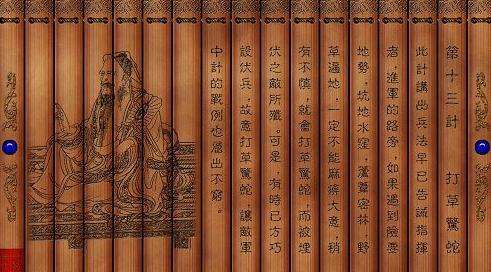 第十三計 打草驚蛇
此計講出兵法早已告誡指揮
者,進軍的路旁,如果遇到險要
地勢,坑地水窪,蘆葦密林,野
草遍地,一定不能麻痹大意,稍
有不慎,就會打草驚蛇,而被埋
伏之敵所殲。可是,有時已方巧
設伏兵,故意打草驚蛇,讓敵軍
中計的戰例也層出不窮。